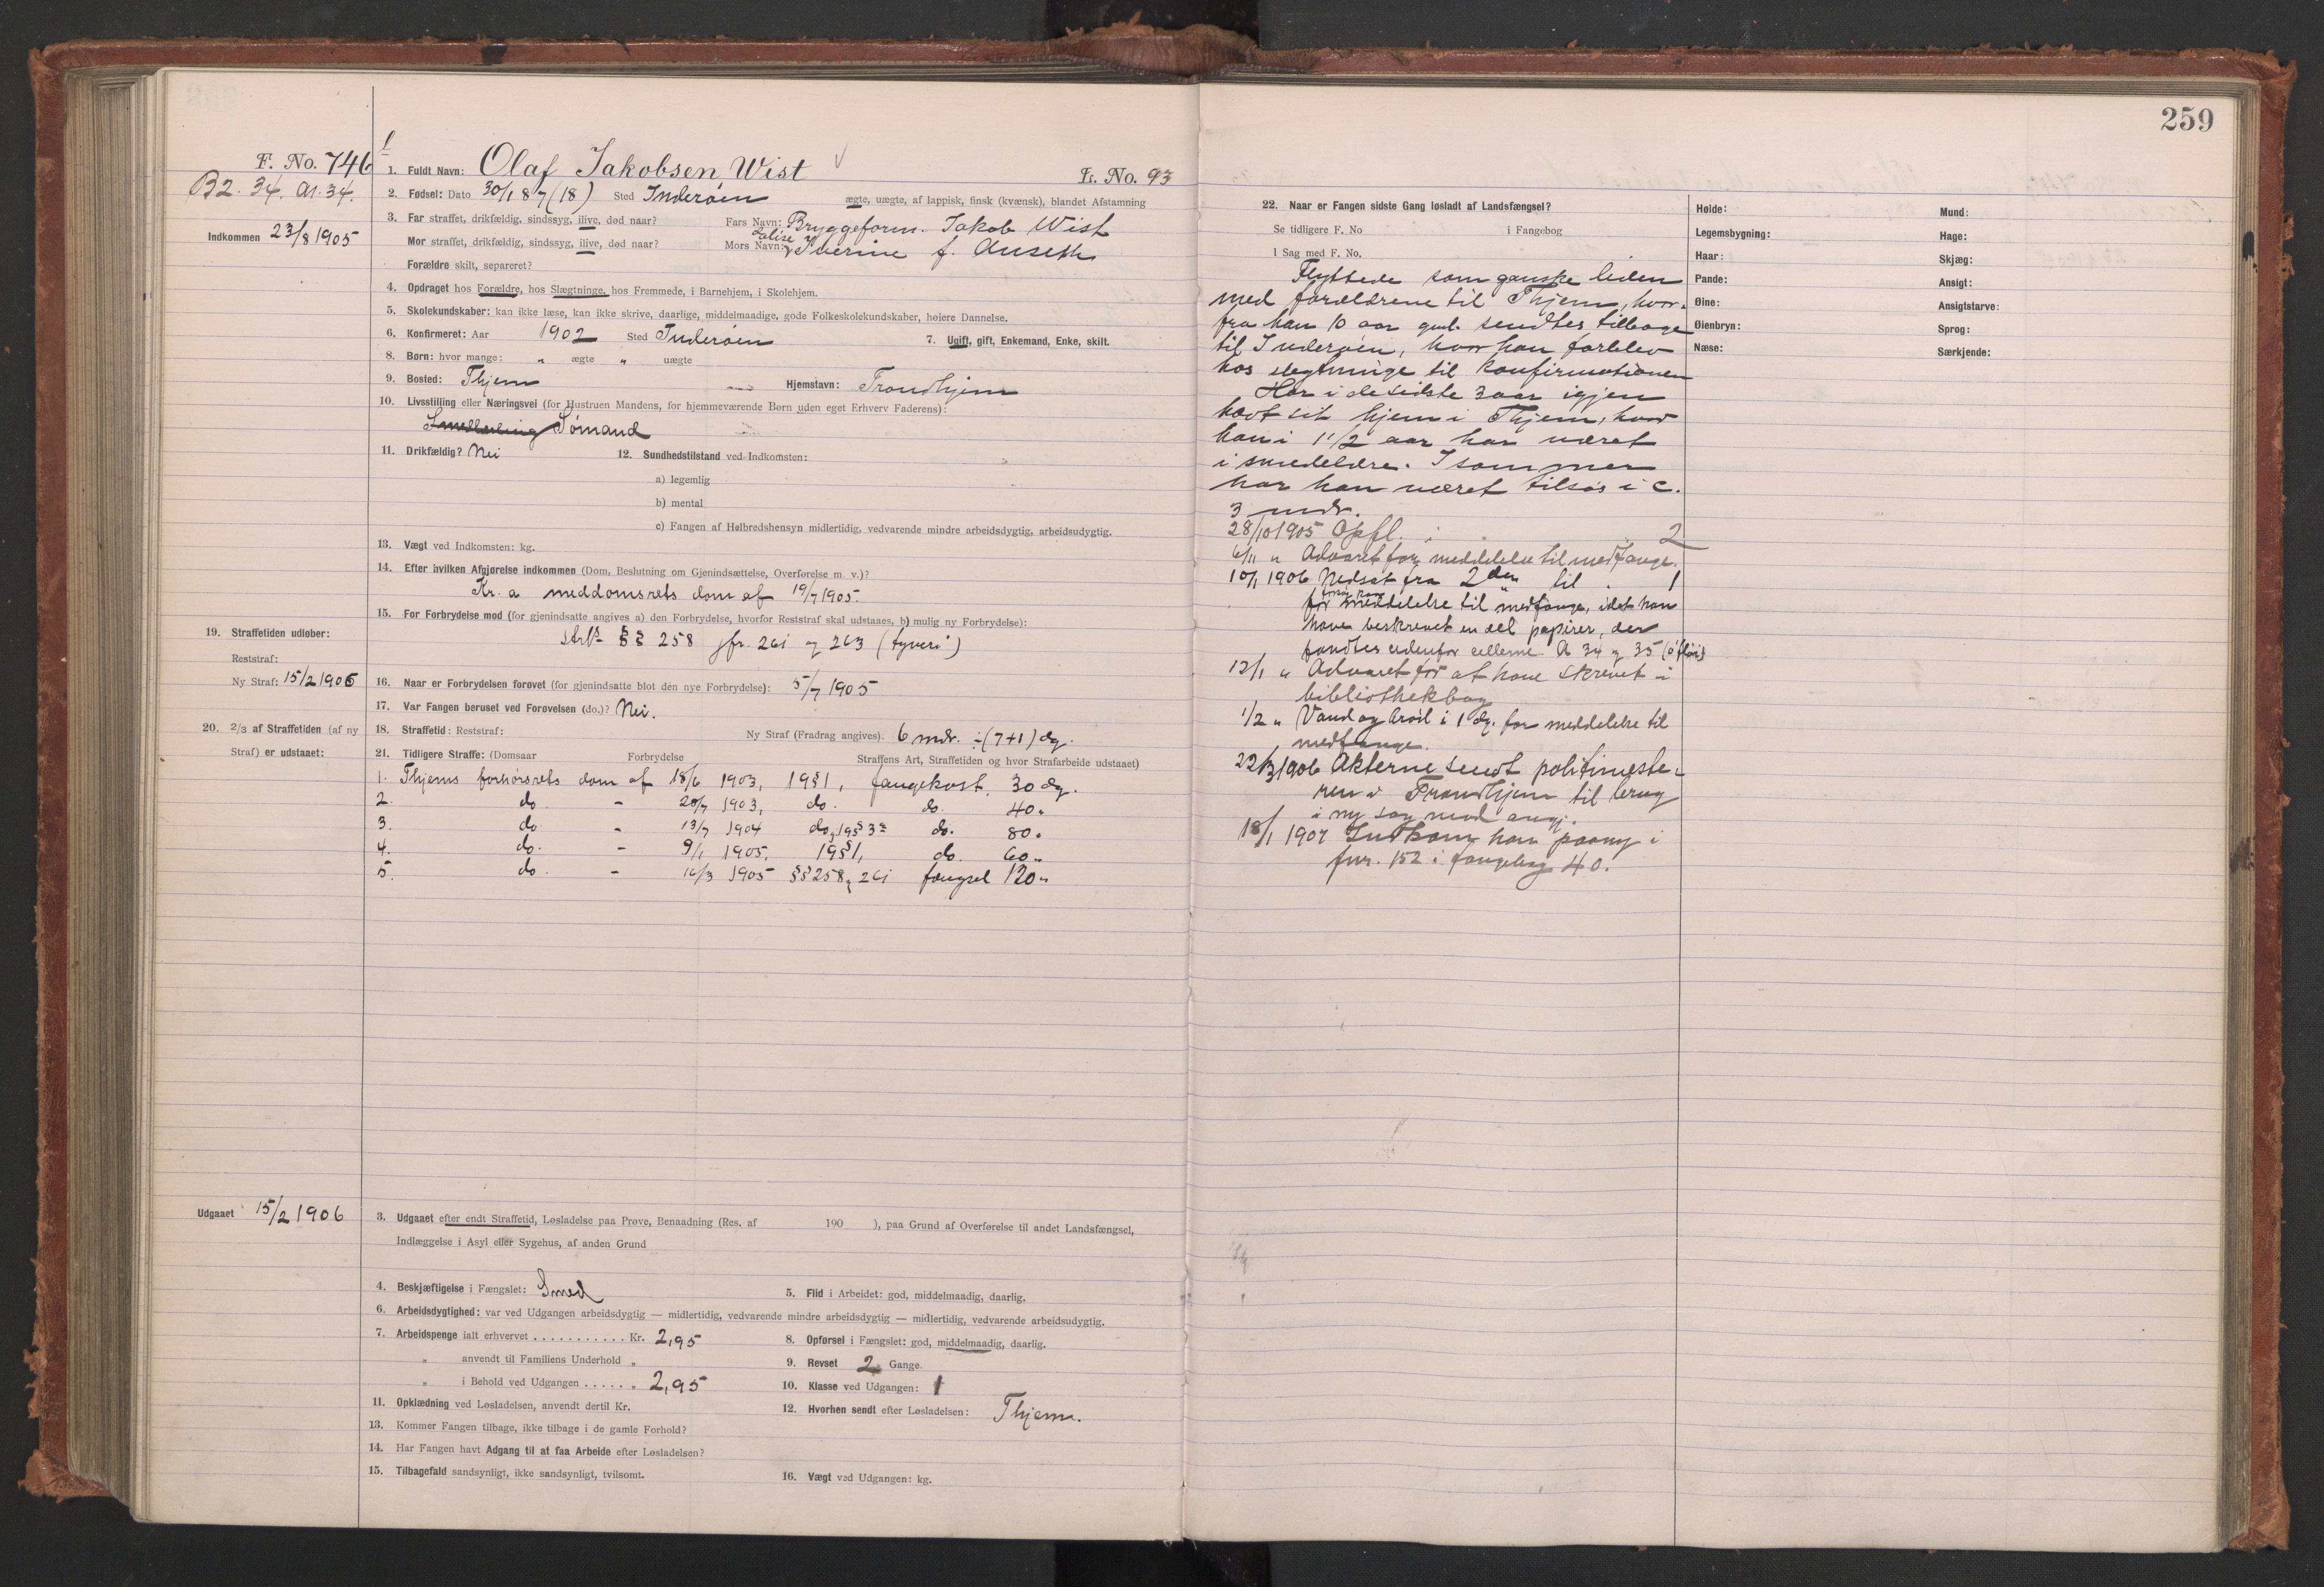 259
F. No. 746
B2. 34. A1. 34.
Indkommen 23/8 1905
1. Fuldt Navn: Olaf Jakobsen Wist
L. No. 93
2. Fødsel: Dato 30/1 87 (18) Sted Inderøen ægte, uægte, af lappisk, finsk (kvænsk), blandet Afstamning
3. Far straffet, drikfældig, sindssyg, ilive, død naar? Fars Navn: Bryggeform. Jakob Wist
Mor straffet, drikfældig, sindssyg, ilive, død naar? Mors Navn: Iverine f. Auseth
Forældre skilt, separeret?
4. Opdraget hos Forældre, hos Slægtninge, hos Fremmede, i Barnehjem, i Skolehjem.
5. Skolekundskaber: kan ikke læse, kan ikke skrive, daarlige, middelmaadige, gode Folkeskolekundskaber, høiere Dannelse.
6. Konfirmeret: Aar 1902 Sted Inderøen 7. Ugift, gift, Enkemand, Enke, skilt.
8. Børn: hvor mange: " ægte " uægte
9. Bosted: Thjem Hjemstavn: Trondhjem
10. Livsstilling eller Næringsvei (for Hustruen Mandens, for hjemmeværende Børn uden eget Erhverv Faderens):
Sømand
11. Drikfældig? Nei 12. Sundhedstilstand ved Indkomsten:
a) legemlig
b) mental
c) Fangen af Helbredshensyn midlertidig, vedvarende mindre arbeidsdygtig, arbeidsudygtig.
13. Vægt ved Indkomsten: kg.
14. Efter hvilken Afgjørelse indkommen (Dom, Beslutning om Gjenindsættelse, Overførelse m. v.)?
Kr. a meddomsrets dom af 19/7 1905.
15. For Forbrydelse mod (for gjenindsatte angives a) den Forbrydelse, hvorfor Reststraf skal udstaaes, b) mulig ny Forbrydelse):
Strl §§ 258 jfr. 261 og 263 (tyveri)
19. Straffetiden udløber:
Reststraf:
Ny Straf: 15/2 1906
16. Naar er Forbrydelsen forøvet (for gjenindsatte blot den nye Forbrydelse): 5/7 1905
17. Var Fangen beruset ved Forøvelsen (do.)? Nei.
20. 2/3 af Straffetiden (af ny
Straf) er udstaaet:
18. Straffetid: Reststraf: Ny Straf (Fradrag angives). 6 mdr. ÷ (7+1) dg.
21. Tidligere Straffe: (Domsaar Forbrydelse Straffens Art, Straffetiden og hvor Strafarbeide udstaaet)
1. Thjems forhørsrets dom af 18/6 1903, 19§1, fangekost. 30 dg.
2. do. - 20/7 1903, do. do. 40 "
3. do - 13/7 1904 do, 19§3 do. 80 "
4. do. - 9/1 1905. 19§1, do. 60 "
5. do - 16/3 1905 §§258, 261 fængsel 120 "
Udgaaet 15/2 1906
3. Udgaaet efter endt Straffetid, Løsladelse paa Prøve, Benaadning (Res. af 190 ), paa Grund af Overførelse til andet Landsfængsel,
Indlæggelse i Asyl eller Sygehus, af anden Grund
4. Beskjæftigelse i Fængslet: Smed 5. Flid i Arbeidet: god, middelmaadig, daarlig.
6. Arbeidsdygtighed: var ved Udgangen arbeidsdygtig — midlertidig, vedvarende mindre arbeidsdygtig — midlertidig, vedvarende arbeidsudygtig.
7. Arbeidspenge ialt erhvervet ........... Kr. 2,95 8. Opførsel i Fængslet: god, middelmaadig, daarlig.
" anvendt til Familiens Underhold " 9. Revset 2 Gange.
" i Behold ved Udgangen ...... " 2,95 10. Klasse ved Udgangen: 1
11. Opklædning ved Løsladelsen, anvendt dertil Kr. 12. Hvorhen sendt efter Løsladelsen: Thjem.
13. Kommer Fangen tilbage, ikke tilbage i de gamle Forhold?
14. Har Fangen havt Adgang til at faa Arbeide efter Løsladelsen?
15. Tilbagefald sandsynligt, ikke sandsynligt, tvilsomt. 16. Vægt ved Udgangen: kg.
22. Naar er Fangen sidste Gang løsladt af Landsfængsel?
Se tidligere F. No i Fangebog
I Sag med F. No.
Flyttede som ganske liden
med forældrene til Thjem, hvor-
fra han 10 aar gml. sendtes tilbage
til Inderøen, hvor han forblev
hos slegtninge til konfirmationen
Har i de sidste 3 aar igjen
havt sit hjem i Thjem, hvor
han i 1 1/2 aar har været
i smedelære. I sommer
har han været tilsøs i c.
3 mdr.
28/10 1905 Opfl. 2
6/11 " Advaret for meddelelse til medfange.
10/1 1906 Nedsat fra 2den til 1
for meddelelse til medfange, idet han
have beskrevet en del papirer, der
fandtes udenfor cellerne A 34 og 35
12/1 " Advaret for at have skrevet i
bibliothekbog
1/2 " Vand og brød i 1 dg. for meddelelse til
medfange.
22/3 1906 Akterne sendt politimeste-
ren i Trondhjem til brug
i ny sag mod angj.
18/1 1907 Indkom han paany i
fnr. 152 i fangebog 40.
Høide:
Legemsbygning:
Haar:
Pande:
Øine:
Øienbryn:
Næse:
Mund:
Hage:
Skjæg:
Ansigt:
Ansigtstarve:
Sprog:
Særkjende: